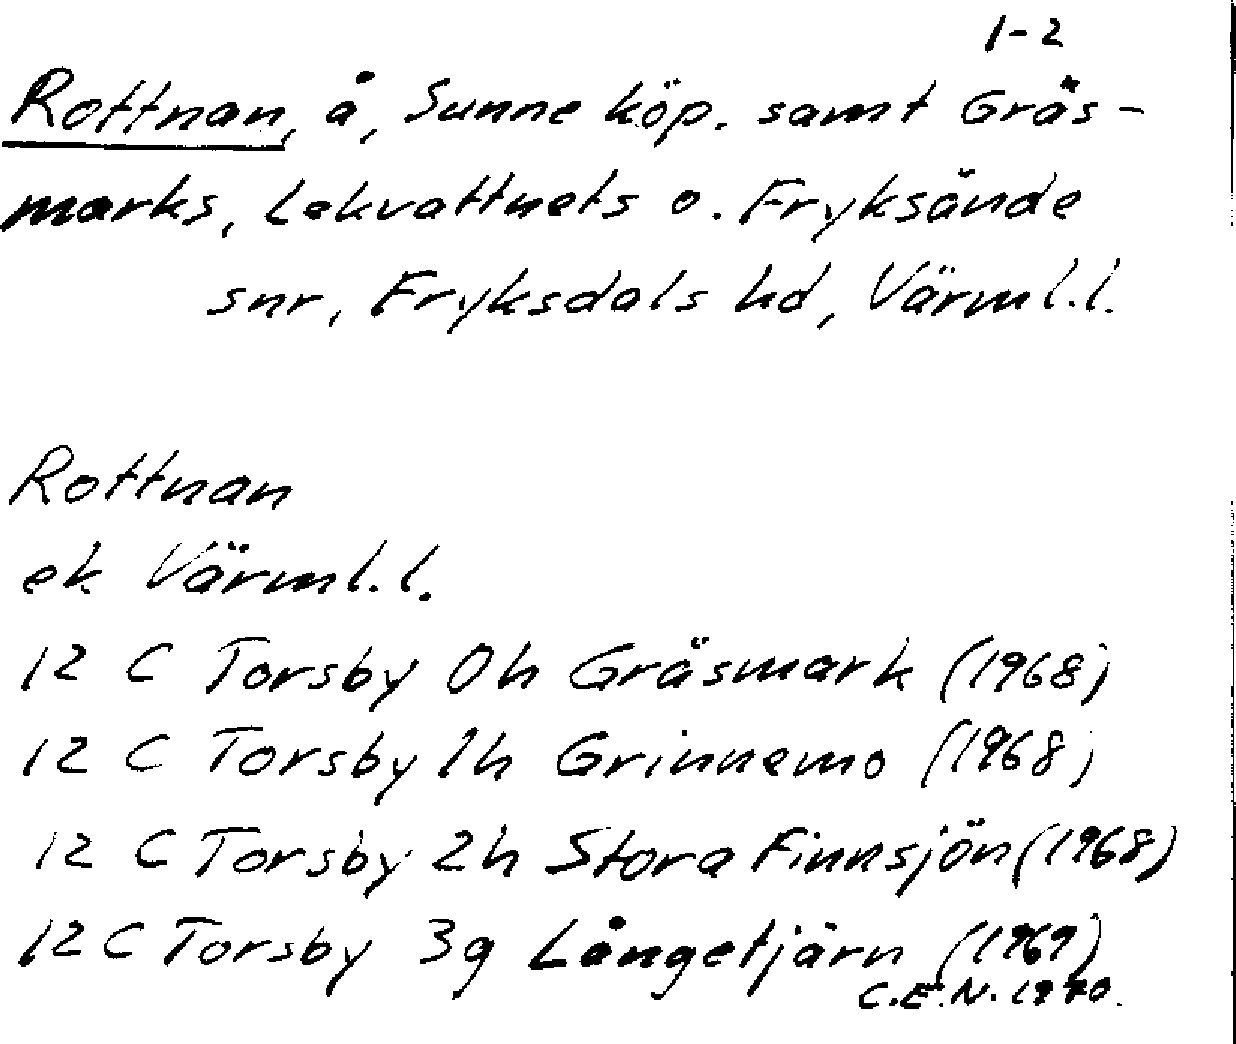 1-2
Rottnan, å, Sunne köp. samt Gräs-
marks, Lekvattnets o. Fryksände
snr, Fryksdals hd, Värml.l.
Rottnan
ek Värml.l.
12 C Torsby 0h Gräsmark (1968)
12 C Torsby 1h Grinnemo (1968)
12 C Torsby 2h Stora Finnsjön (1968)
12 C Torsby 3g Långetjärn (1969)
C.E.N. 1970.